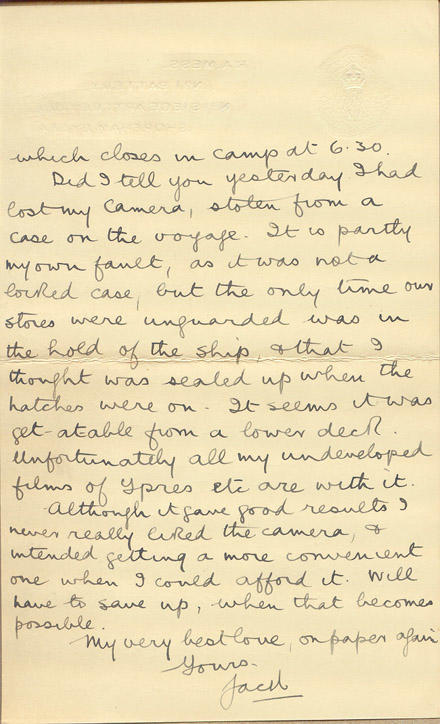 which closes in camp at 6.30.
Did I tell you yesterday I had
lost my camera, stolen from a
case on the voyage. It is partly
my own fault, as it was not a
locked case, but the only time our
stores were unguarded was in
the hold of the ship, & that I
thought was sealed up when the
hatches were on. It seems it was
get-atable from a lower deck.
Unfortunately all my undeveloped
films of Ypres etc are with it.
Although it gave good results I
never really liked the camera, &
intended getting a more convenient
one when I could afford it. Will
have to save up, when that becomes
possible.
My very best love, on paper again
Yours.
Jack